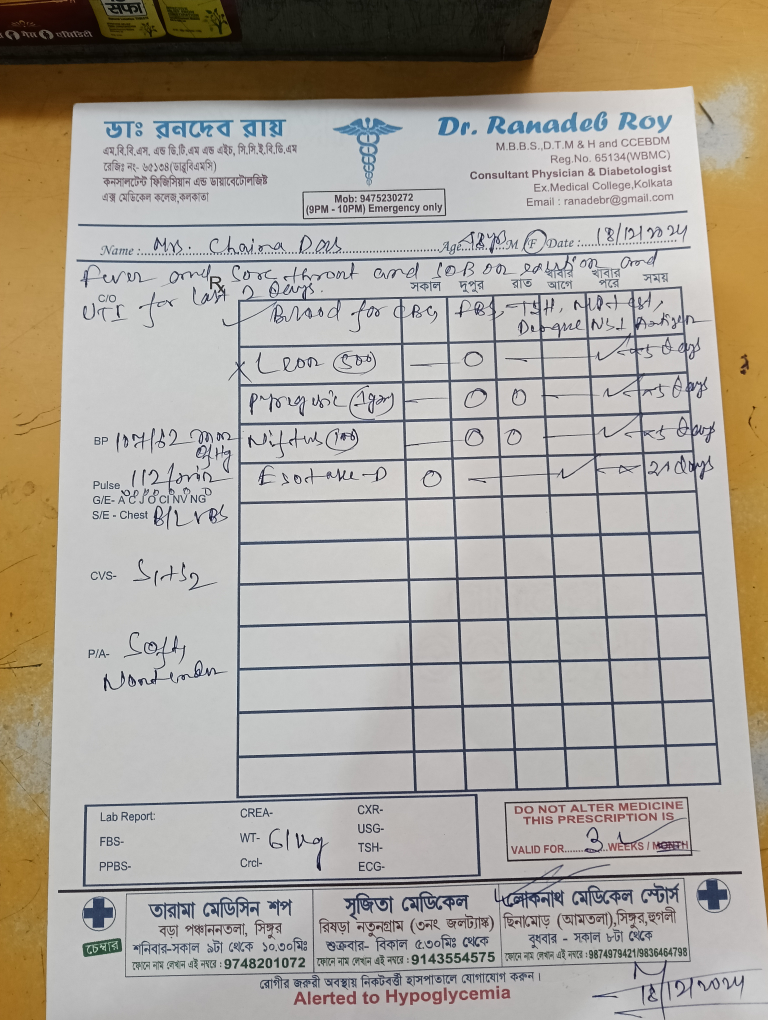 সেফা
ডাঃ রনদেব রায়
এম.বি.বি.এস, এন্ড ডি.টি.এম এন্ড এইচ, সি.সি.ই.বি.ডি.এম
রেজিঃ নং- ৬৫১৩৪(ডাব্লুবিএমসি)
কনসালটেন্ট ফিজিসিয়ান এন্ড ডায়াবেটোলজিষ্ট
এক্স মেডিকেল কলেজ,কলকাতা
Mob: 9475230272
(9PM - 10PM) Emergency only
Dr. Ranadeb Roy
M.B.B.S.,D.T.M & H and CCEBDM
Reg.No. 65134(WBMC)
Consultant Physician & Diabetologist
Ex.Medical College,Kolkata
Email : ranadebr@gmail.com
Name : Mrs. Chaina Das Age 48 yrs M / F Date : 18/12/2024
Fever and Sore throat and SOB on and
C/O Rx সকাল দুপুর রাত খাবার আগে খাবার পরে সময়
UTI for last 2 days.
Blood for CBC, FBS, TSH,
Dengue NS1 Antigen
500 — O — — ✓ x 5 days
1gm — O O — ✓ x 5 days
100 — O O — ✓ x 5 days
D O — ✓ — x 21 days
BP 107/62 mm of Hg
Pulse 112/min
G/E- A C J O Cl NV NG
S/E - Chest B/L VBS
CVS- S1+S2
P/A- Soft,
Nontender
Lab Report: CREA- CXR-
FBS- WT- 61 kg USG-
TSH-
PPBS- Crcl- ECG-
DO NOT ALTER MEDICINE
THIS PRESCRIPTION IS
VALID FOR......3...WEEKS / MONTH
চেম্বার
তারামা মেডিসিন শপ
বড়া পঞ্চাননতলা, সিঙ্গুর
শনিবার-সকাল ৯টা থেকে ১০.৩০মিঃ
ফোনে নাম লেখান এই নম্বরে : 9748201072
সৃজিতা মেডিকেল
রিষড়া নতুনগ্রাম (৩নং জলট্যাঙ্ক)
শুক্রবার- বিকাল ৫.৩০মিঃ থেকে
ফোনে নাম লেখান এই নম্বরে : 9143554575
লোকনাথ মেডিকেল স্টোর্স
ছিনামোড় (আমতলা),সিঙ্গুর,হুগলী
বুধবার - সকাল ৮টা থেকে
ফোনে নাম লেখান এই নম্বরে : 9874979421/9836464798
রোগীর জরুরী অবস্থায় নিকটবর্ত্তী হাসপাতালে যোগাযোগ করুন।
Alerted to Hypoglycemia
18/12/2024